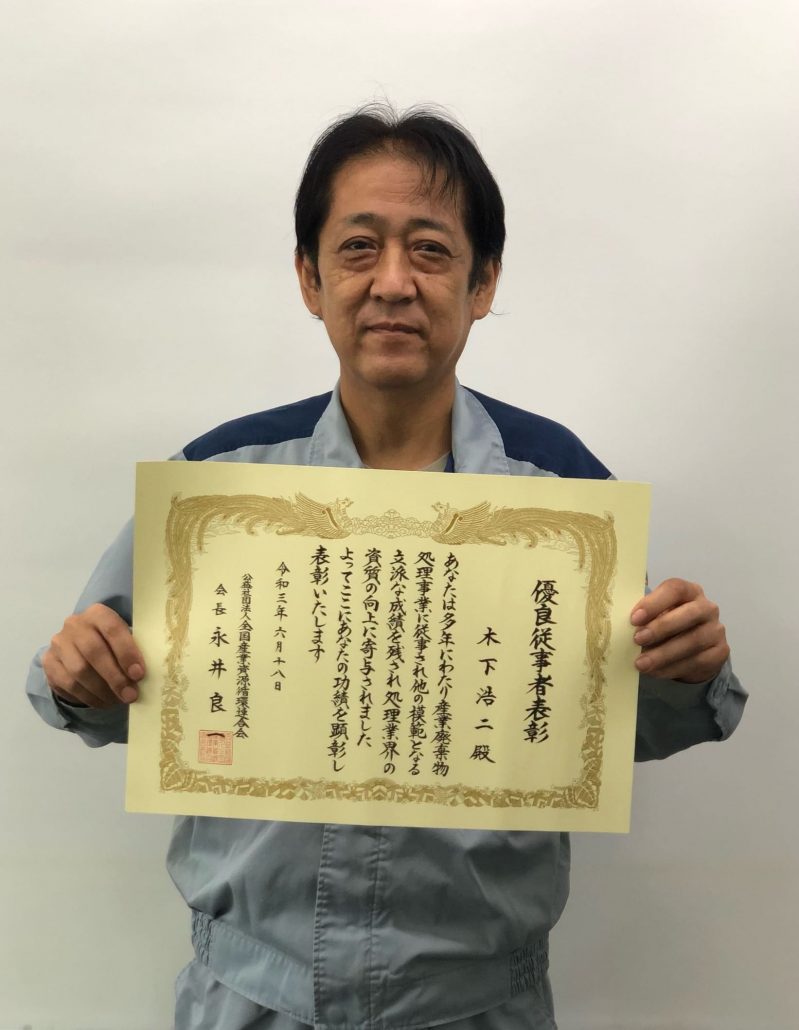 優良従事者表彰
木下浩二殿
あなたは多年にわたり産業廃棄物
処理事業に従事され他の模範となる
立派な成績を残され処理業界の
資質の向上に寄与されました
よってここにあなたの功績を顕彰し
表彰いたします
令和三年六月十八日
公益社団法人全国産業資源循環連合会
会長永井良一